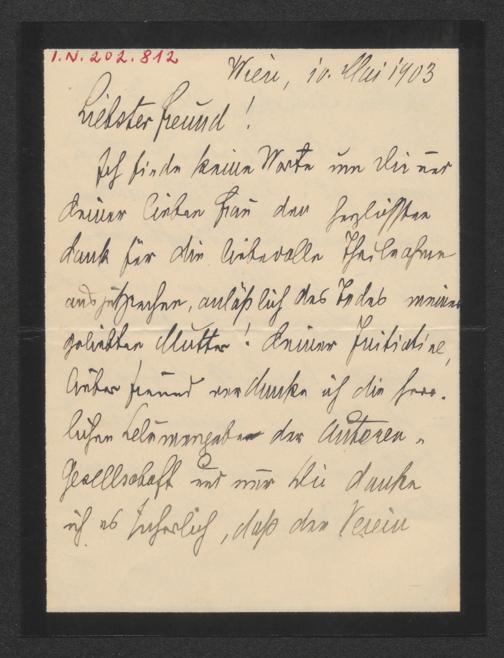 I.N. 202.812
Wien, 10. Mai 1903
Liebster Freund!
Ich finde keine Worte um Dir und
Deiner lieben Frau den herzlichsten
Dank für die liebevolle Theilnahme
auszusprechen, anläßlich des Todes meiner
geliebten Mutter! Deiner Initiative,
lieber Freund verdanke ich die herr-
lichen Blumengaben der Autoren-
Gesellschaft und nur Dir danke
ich es sicherlich, daß der Verein